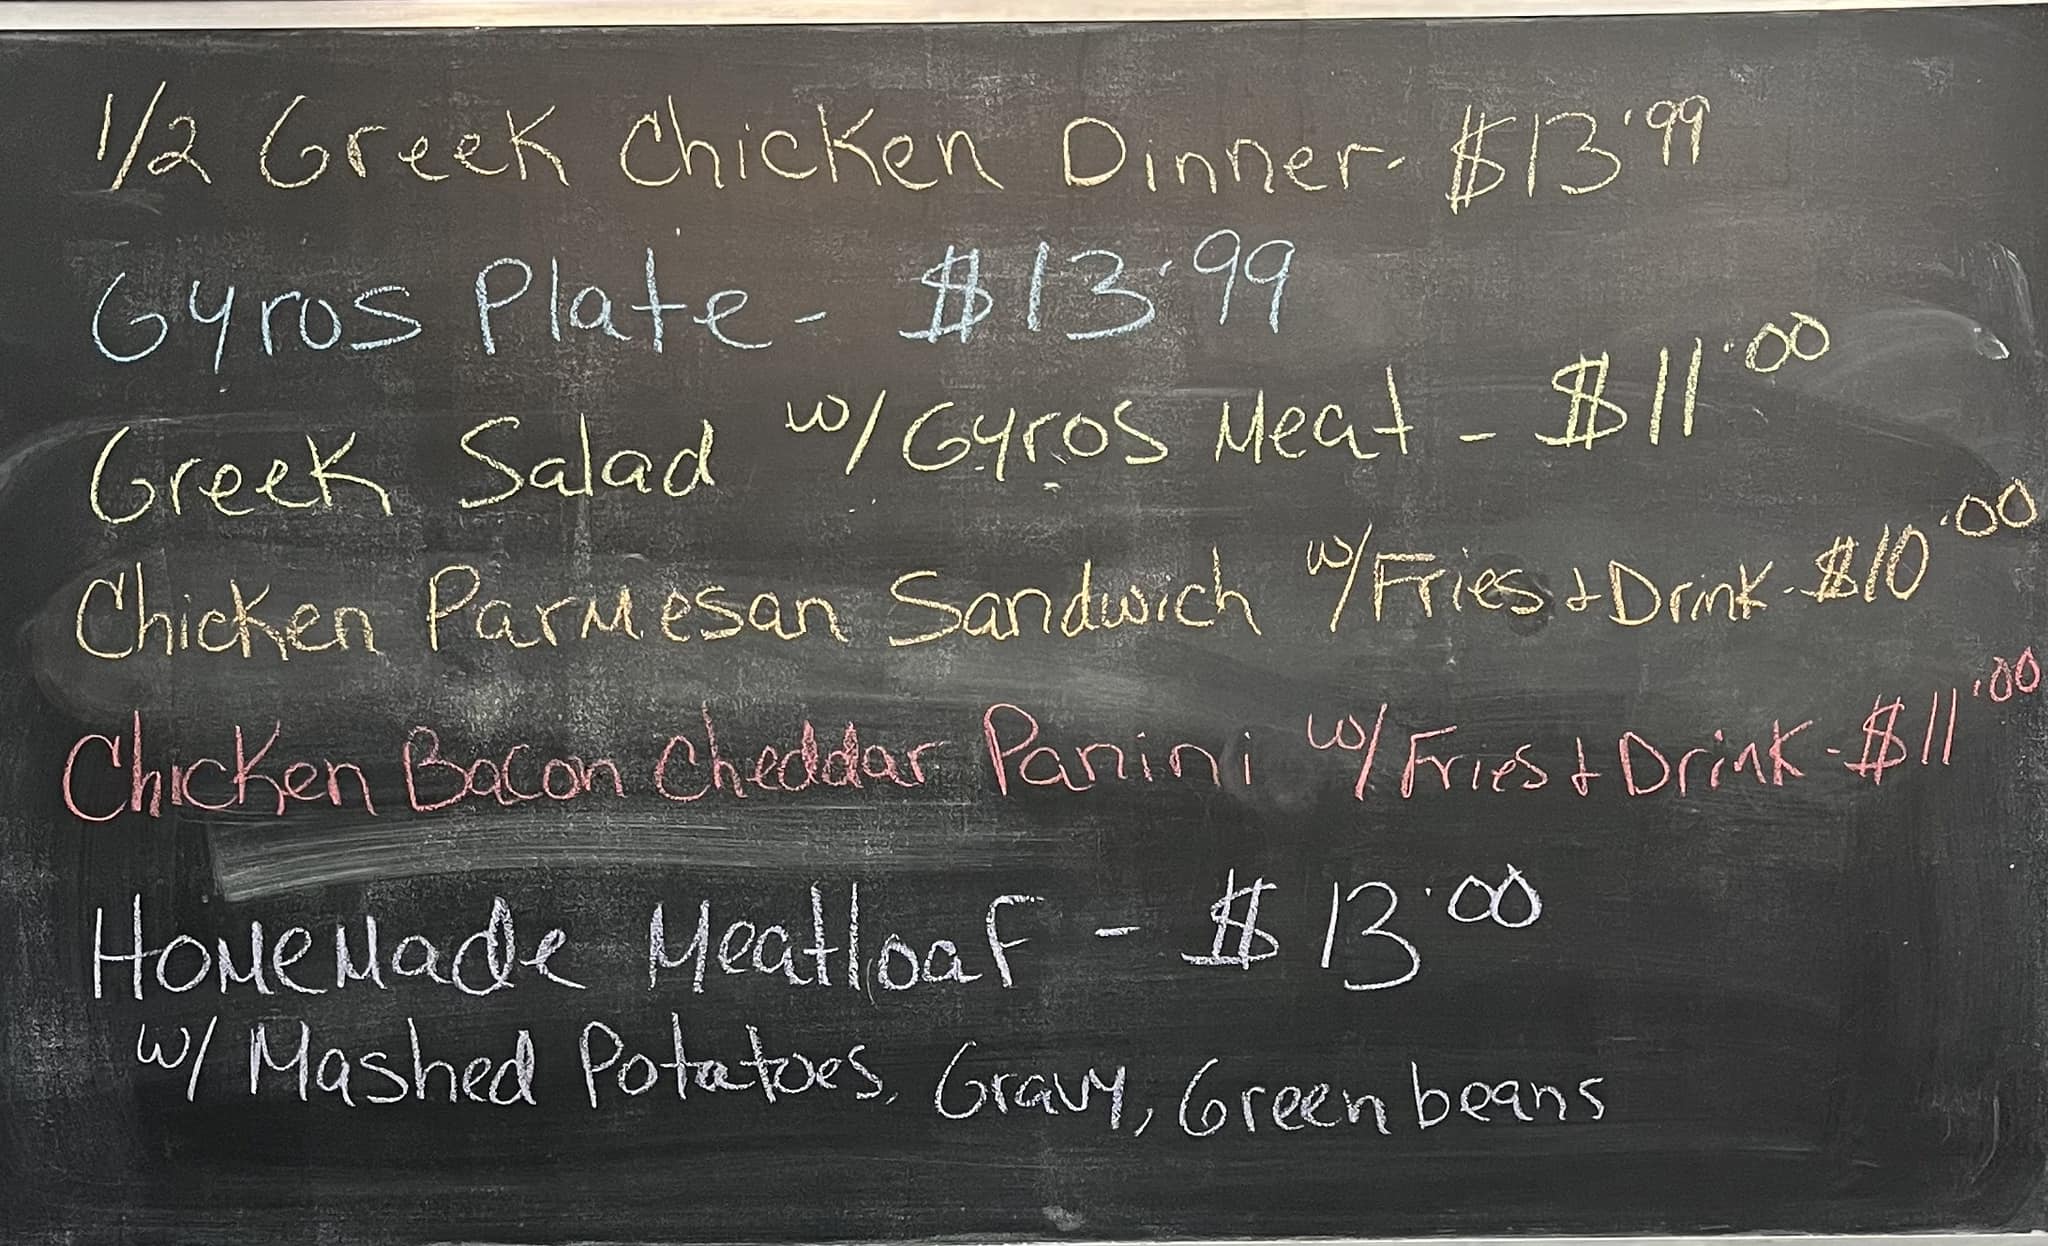 1/2 Greek Chicken Dinner - $13.99
Gyros Plate - $13.99
Greek Salad w/ Gyros Meat - $11.00
Chicken Parmesan Sandwich w/ Fries + Drink - $10.00
Chicken Bacon Cheddar Panini w/ Fries + Drink - $11.00
Homemade Meatloaf - $13.00
w/ Mashed Potatoes, Gravy, Green beans